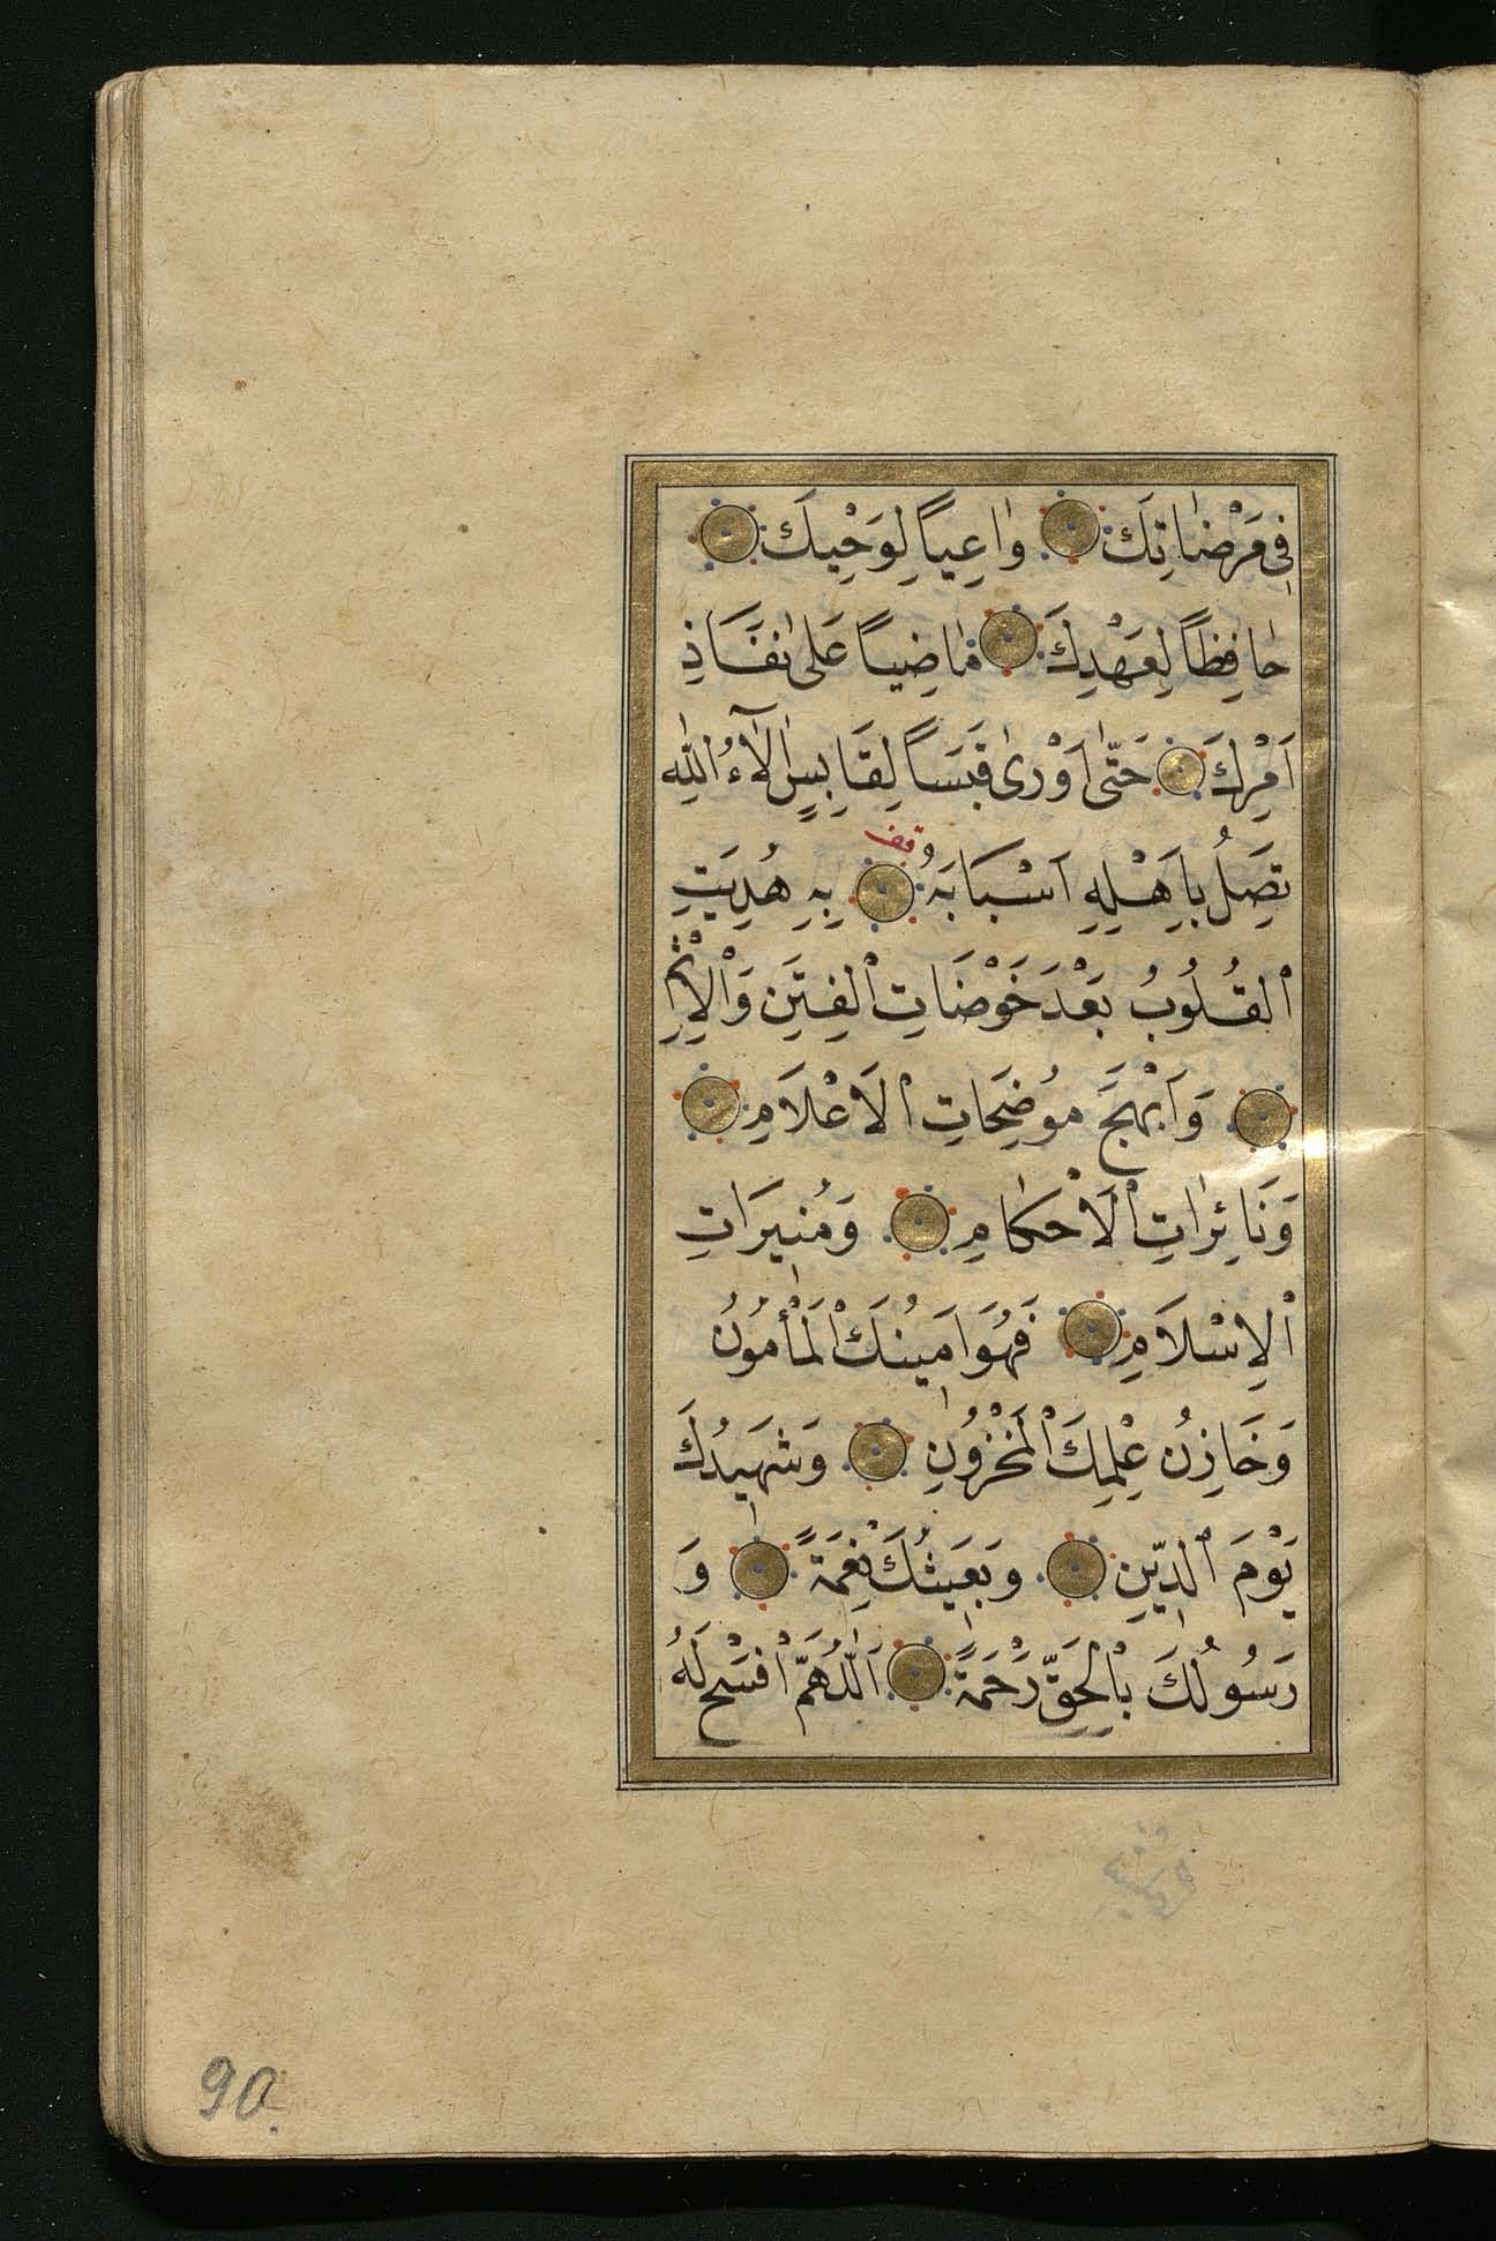 فِى مَرْضَاتِكَ وَاعِياً لِوَحْيِكَ
حَافِظاً لِعَهْدِكَ مَاضِياً عَلىٰ نَفَاذِ
اَمْرِكَ حَتّىٰ اَوْرىٰ قَبَسَاً لِقَابِسٍ اٰلَآءُ اللّٰهِ
وقف
تَصِلُ بِاَهْلِهِ اَسْبَابَهُ بِهِ هُدِيَتِ
اْلقُلُوبُ بَعْدَ خَوْضَاتِ اْلفِتَنِ وَاْلاِثْمِ
وَاَبْهَجَ مُوضِحَاتِ اْلاَعْلَامِ
وَنَائِرَاتِ اْلاَحْكَامِ وَمُنِيرَاتِ
اْلاِسْلَامِ فَهُوَ اَمِينُكَ اْلمَأْمُونُ
وَخَازِنُ عِلْمِكَ اْلمَخْزُونِ وَشَهِيدُكَ
يَوْمَ الدِّينِ وَبَعِيثُكَ نِعْمَةً وَ
رَسُولُكَ بِالْحَقِّ رَحْمَةً اَللّٰهُمَّ افْسَحْ لَهُ
90